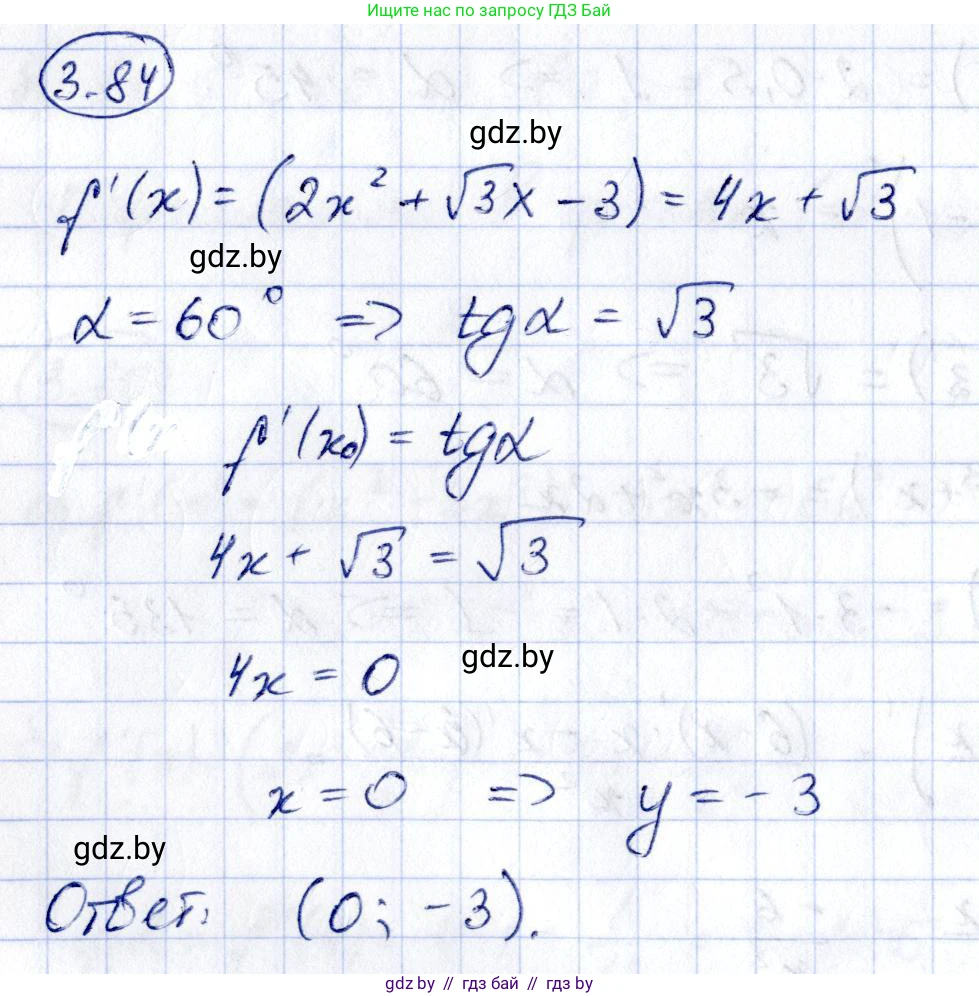 Ищите нас по запросу ГДЗ Бай
3.84
gdz.by
f'(x) = (2x² + √3x - 3) = 4x + √3
gdz.by
α = 60° => tgα = √3
f'(x₀) = tgα
4x + √3 = √3
4x = 0
gdz.by
x = 0 => y = - 3
gdz.by
Ответ: (0; -3).
gdz.by // гдз бай // gdz by